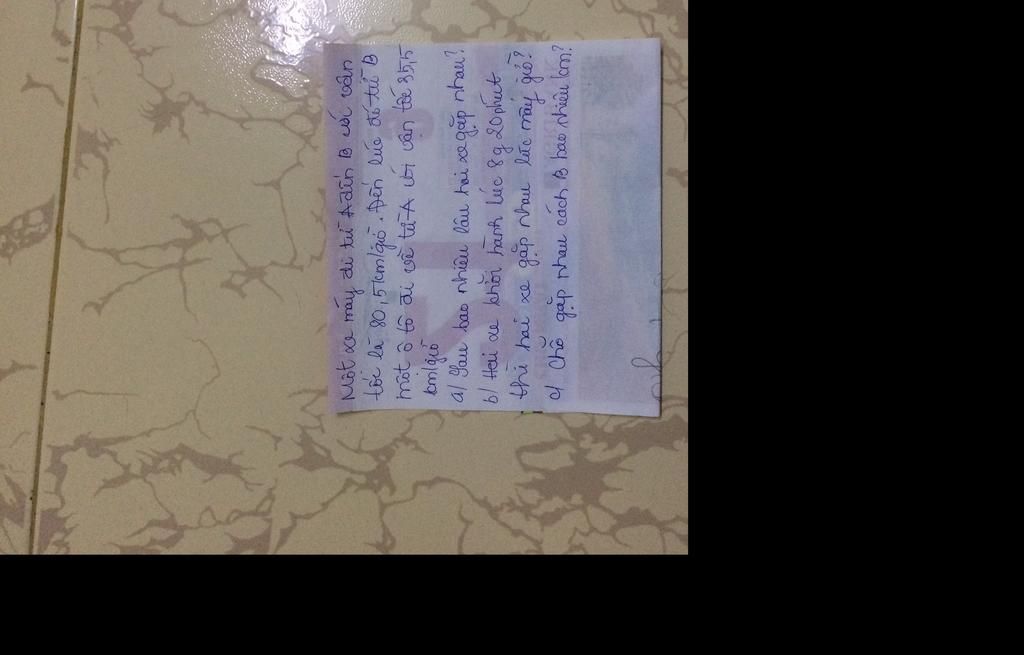 Một xe máy đi từ A đến B với vận
tốc là 30,5 km/giờ. Đến lúc đó từ B
một ô tô đi về từ A với vận tốc 35,5
km/giờ
a/ Sau bao nhiêu lâu hai xe gặp nhau?
b/ Hai xe khởi hành lúc 8g 20 phút
thì hai xe gặp nhau lúc mấy giờ?
c/ Chỗ gặp nhau cách B bao nhiêu km?